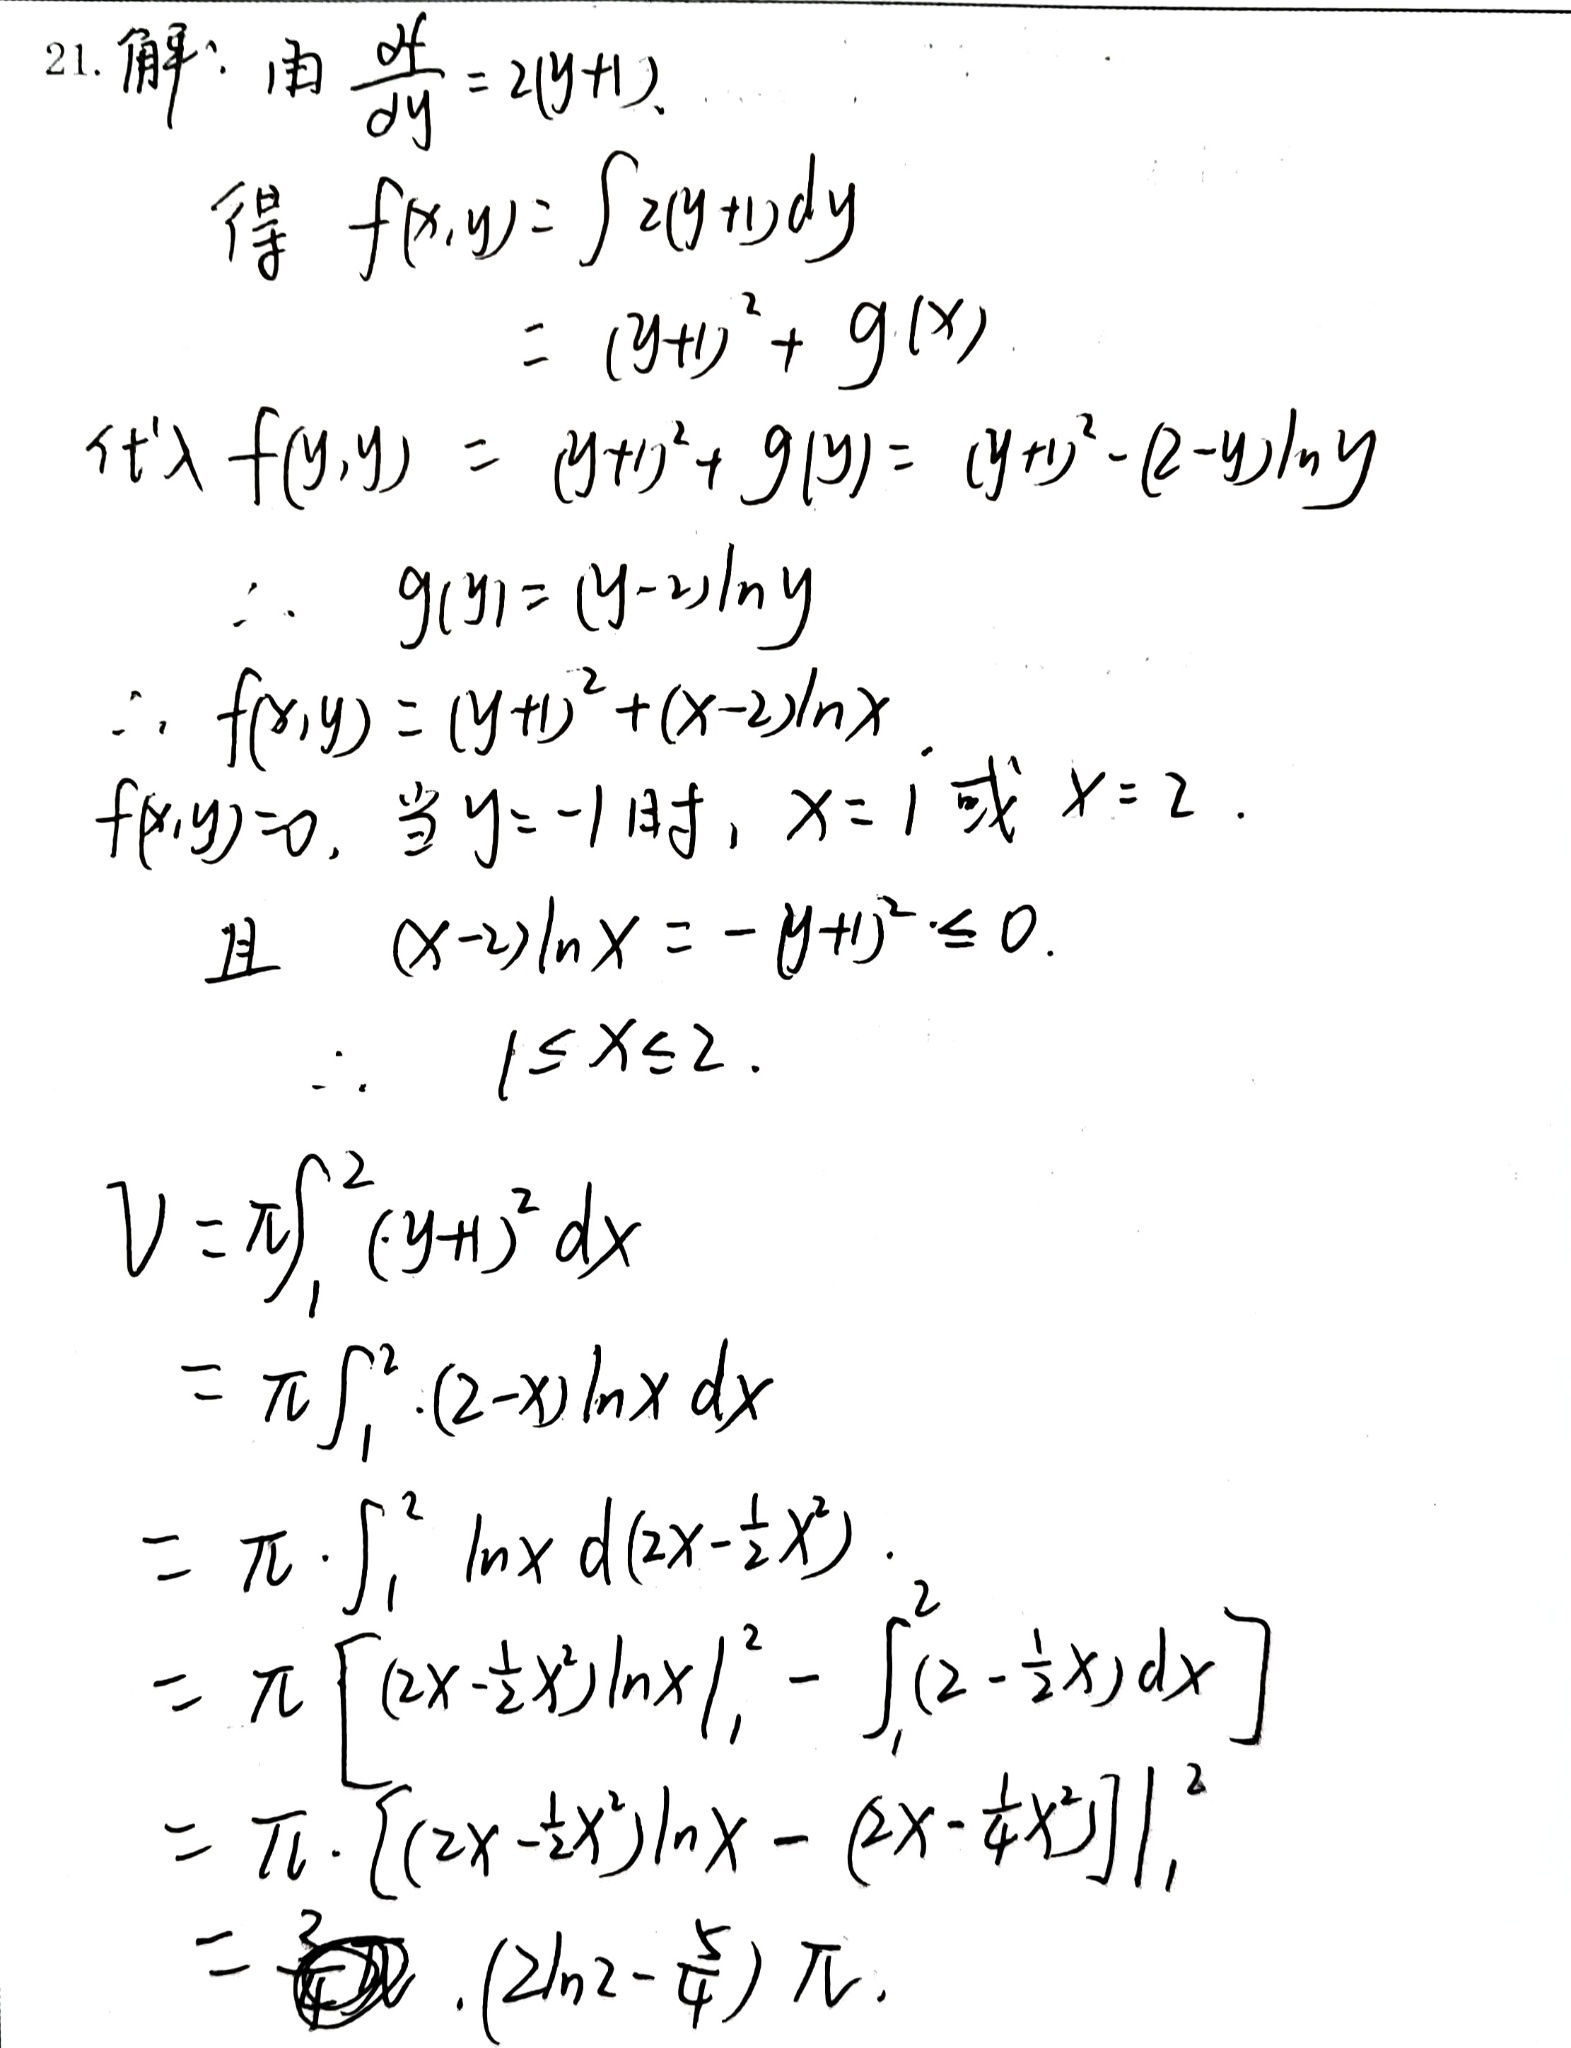 21. 解: 由 df/dy = 2(y+1).
得 f(x,y) = ∫2(y+1)dy
= (y+1)² + g(x)
代入 f(y,y) = (y+1)² + g(y) = (y+1)² - (2-y)lny
∴ g(y) = (y-2)lny
∴ f(x,y) = (y+1)² + (x-2)lnx.
f(x,y)=0, 当 y=-1时, x=1 或 x=2.
且 (x-2)lnx = -(y+1)² ≤ 0.
∴ 1≤x≤2.
V = π∫₁² (y+1)² dx
= π∫₁² (2-x)lnx dx
= π·∫₁² lnx d(2x-½x²).
= π[(2x-½x²)lnx|₁² - ∫₁²(2-½x)dx]
= π·[(2x-½x²)lnx - (2x-¼x²)]|₁²
= (2ln2-5/4)π.